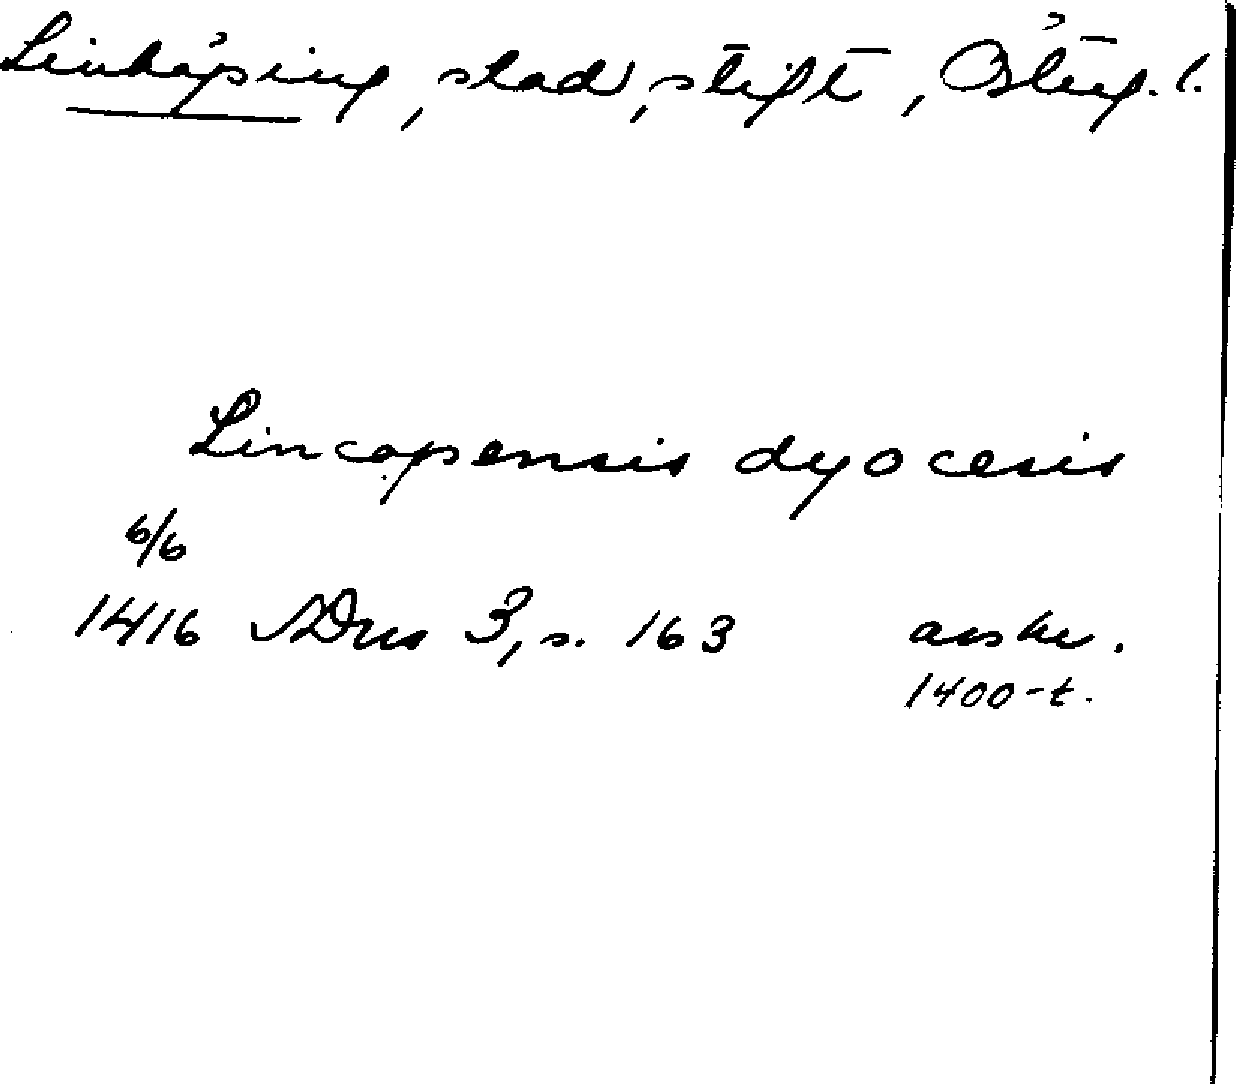 Linköping, stad, stift, Östg. l.
Lincopensis dyocesis
6/6
1416 SDns 3, s. 163 avskr.
1400-t.